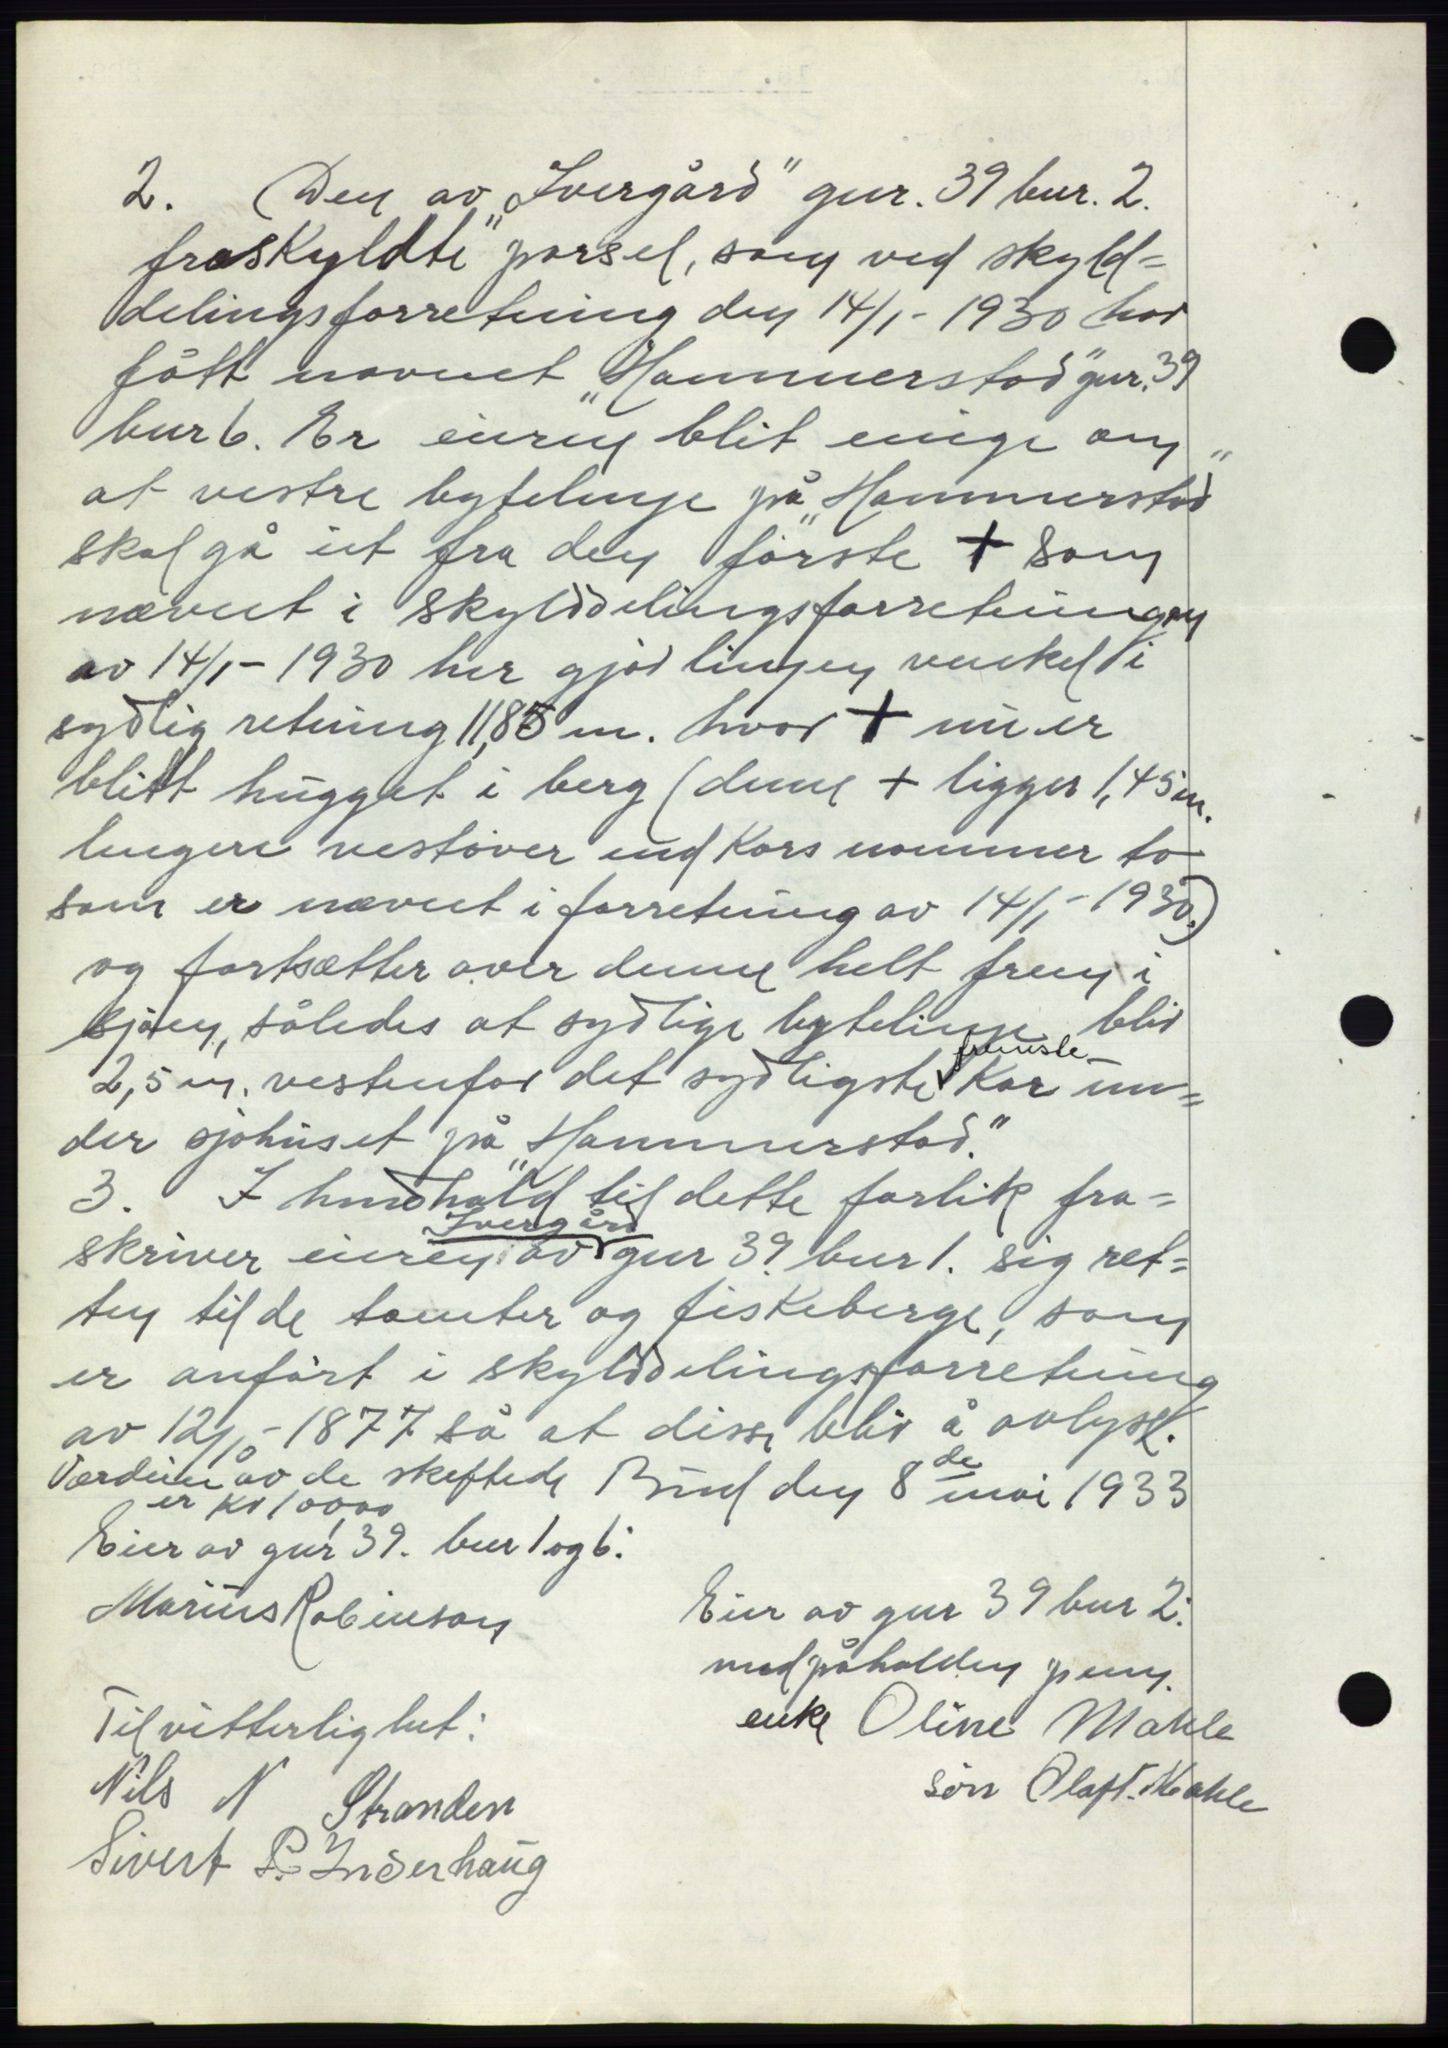 2. Den av „Ivergård" gnr. 39 bnr. 2.
fraskyldte parsel, som ved skyld=
delingsforretning den 14/1- 1930 har
fått navnet „Hammerstad" gnr. 39
bnr 6. Er eieren blit enige om
at vestre bytelinje på „Hammerstad"
skal gå ut fra den første + som
nævnt i skylddelingsforretningen
av 14/1- 1930 her gjør linjen venkel i
sydlig retning 11,85 m. hvor + nu er
blitt hugget i berg (denne + ligger 1,45 m.
lengere vestover end Kors nommer to
som er nævnt i forretning av 14/1- 1930.)
og fortsætter over denne helt frem i
sjøen, således at sydlige bytelinje blir
2,5 m. vestenfor det sydligste fremste Kar un=
der sjøhuset på „Hammerstad."
3. I henhold til dette forlik fra=
skriver eieren av Ivergård gnr 39. bnr 1. sig ret=
ten til de tomter og fiskeberge, som
er anført i skylddelingsforretning
av 12/10- 1877 så at disse blir å avlyse.
Værdien av de skeftede Bud den 8de mai 1933
er kr 100,00
Eier av gnr 39. bnr 1 og 6:
Marius Robinson
Eier av gnr 39 bnr 2:
med påholden penn.
enke Oline Mahle
søn Olaf T. Mahle
Til vitterlighet:
Nils N Stranden
Sivert P. Inderhaug